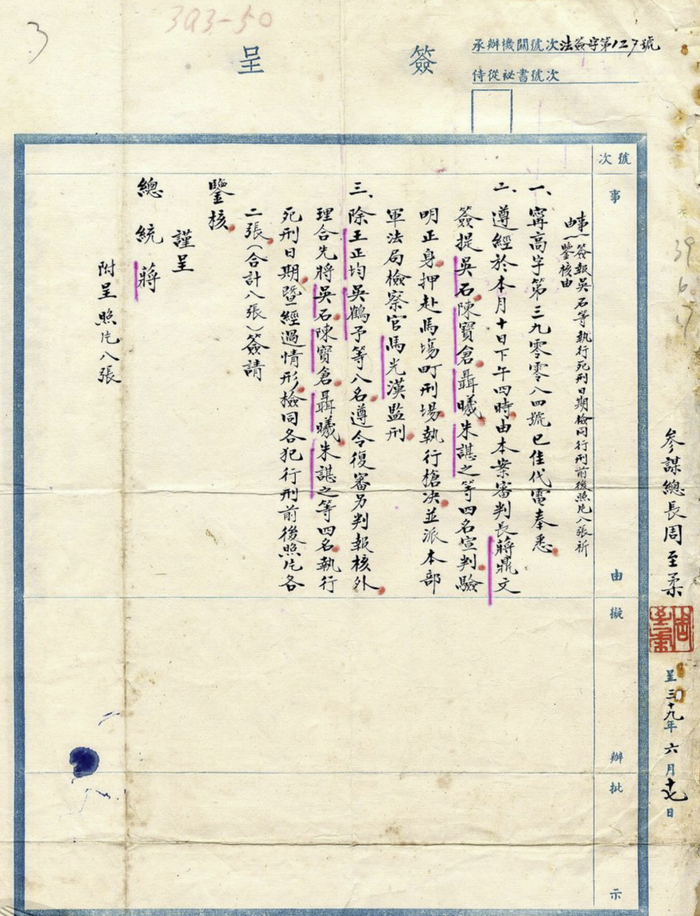 393-50
3
承辦機關號次法簽字第127號
侍從祕書號次
簽呈
參謀總長周至柔
呈三十九年六月十七日
號次
事由擬辦批示
事由簽報吳石等執行死刑日期檢同行刑前後照片八張祈
鑒核由
一、寗高字第三九零零八四號巳佳代電奉悉
二、遵經於本月十日下午四時由本案審判長蔣鼎文
簽提吳石陳寶倉聶曦朱諶之等四名宣判驗
明正身押赴馬塲町刑塲執行搶決並派本部
軍法局檢察官馬光漢監刑
三、除王正均吳鶴予等八名遵令復審另判報核外
理合先將吳石陳寶倉聶曦朱諶之等四名執行
死刑日期暨經過情形檢同各犯行刑前後照片各
二張(合計八張)簽請
鑒核
謹呈
總統蔣
附呈照片八張